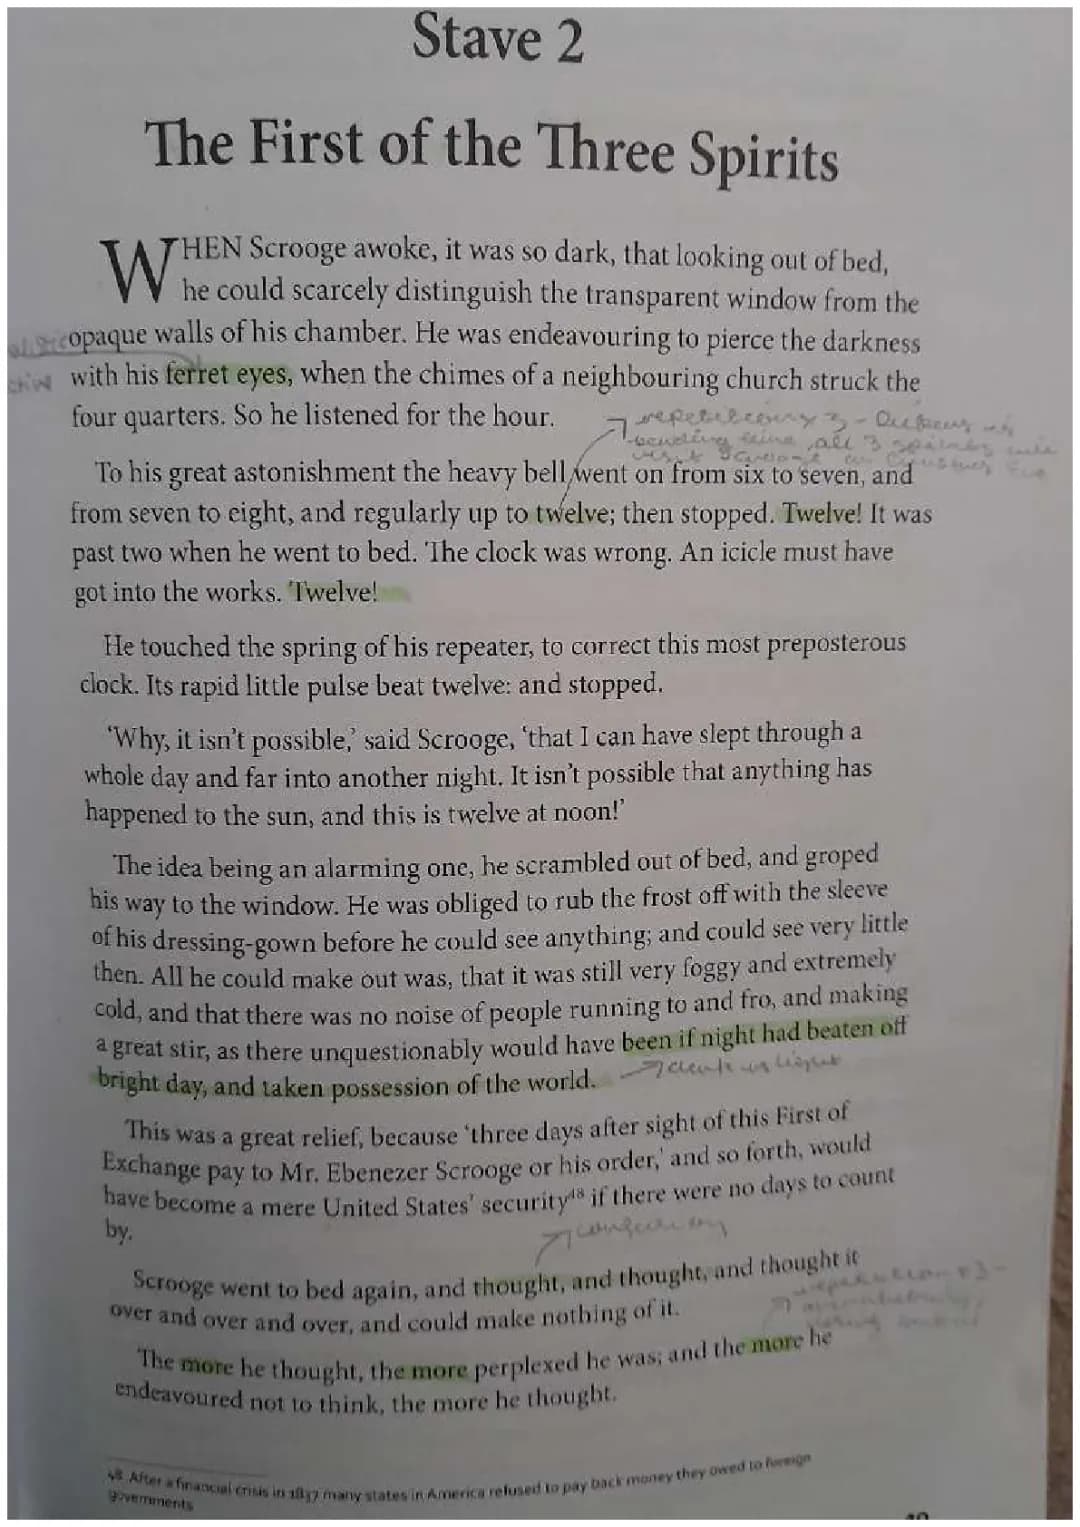 Stave 2
The First of the Three Spirits
WHEN Scrooge awoke, it was so dark, that looking out of bed,
he could scarcely distinguish the transparent window from the
opaque walls of his chamber. He was endeavouring to pierce the darkness
with his ferret eyes, when the chimes of a neighbouring church struck the
four quarters. So he listened for the hour.
all 3 spirits
To his great astonishment the heavy bell went on from six to seven, and
from seven to eight, and regularly up to twelve; then stopped. Twelve! It was
past two when he went to bed. The clock was wrong. An icicle must have
got into the works. Twelve!
He touched the spring of his repeater, to correct this most preposterous
clock. Its rapid little pulse beat twelve: and stopped.
‘Why, it isn’t possible,’ said Scrooge, ‘that I can have slept through a
whole day and far into another night. It isn’t possible that anything has
happened to the sun, and this is twelve at noon!’
The idea being an alarming one, he scrambled out of bed, and groped
his way to the window. He was obliged to rub the frost off with the sleeve
of his dressing-gown before he could see anything; and could see very little
then. All he could make out was, that it was still very foggy and extremely
cold, and that there was no noise of people running to and fro, and making
a great stir, as there unquestionably would have been if night had beaten off
bright day, and taken possession of the world.
This was a great relief, because ‘three days after sight of this First of
Exchange pay to Mr. Ebenezer Scrooge or his order,’ and so forth, would
have become a mere United States’ security48 if there were no days to count
by.
Scrooge went to bed again, and thought, and thought, and thought it
over and over and over, and could make nothing of it.
The more he thought, the more perplexed he was; and the more he
endeavoured not to think, the more he thought.
48 After a financial crisis in 1837 many states in America refused to pay back money they owed to foreign
governments